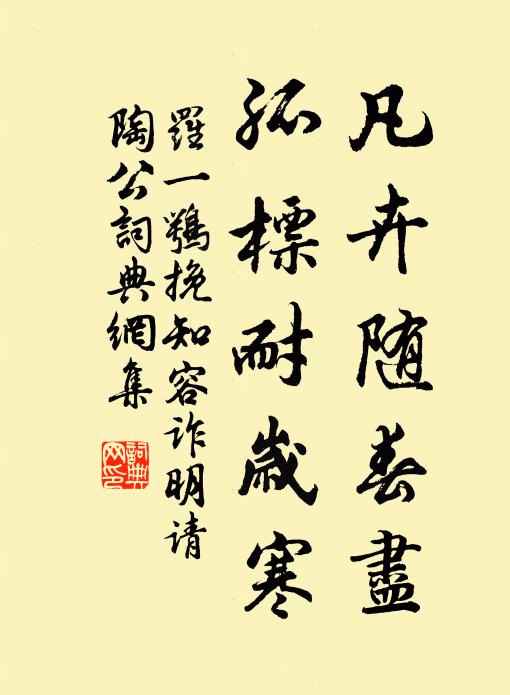 凡卉随春盡
孤標耐歲寒
羅一鶚挽知容詐明请
陶公詞典網集
詞典网印